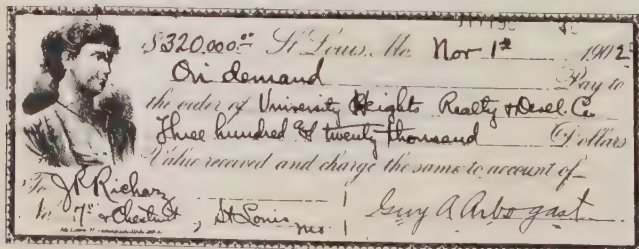 $320,000.00 St Louis, Mo. Nov 1st 1902
On demand Pay to
the order of University Heights Realty & Devel. Co
Three hundred & twenty thousand Dollars
Value received and charge the same to account of
To J R Richarz
No 7th & Chestnut, St Louis Mo. Guy A Arbogast